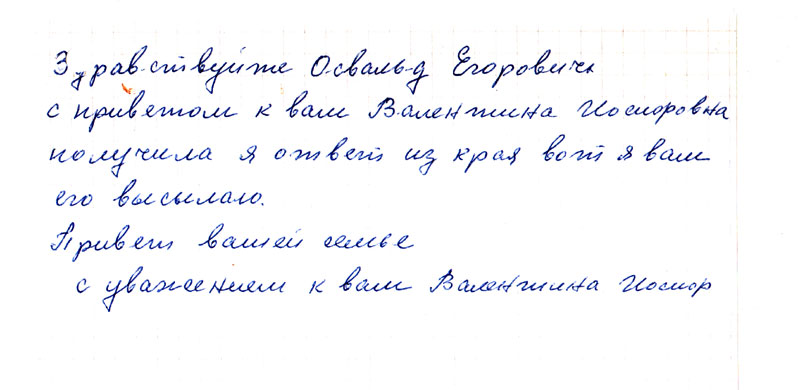 Здравствуйте Освальд Егорович
с приветом к вам Валентина Иосиоровна
получила я ответ из края вот я вам
его высылаю.
Привет вашей семье
с уважением к вам Валентина Иосиор